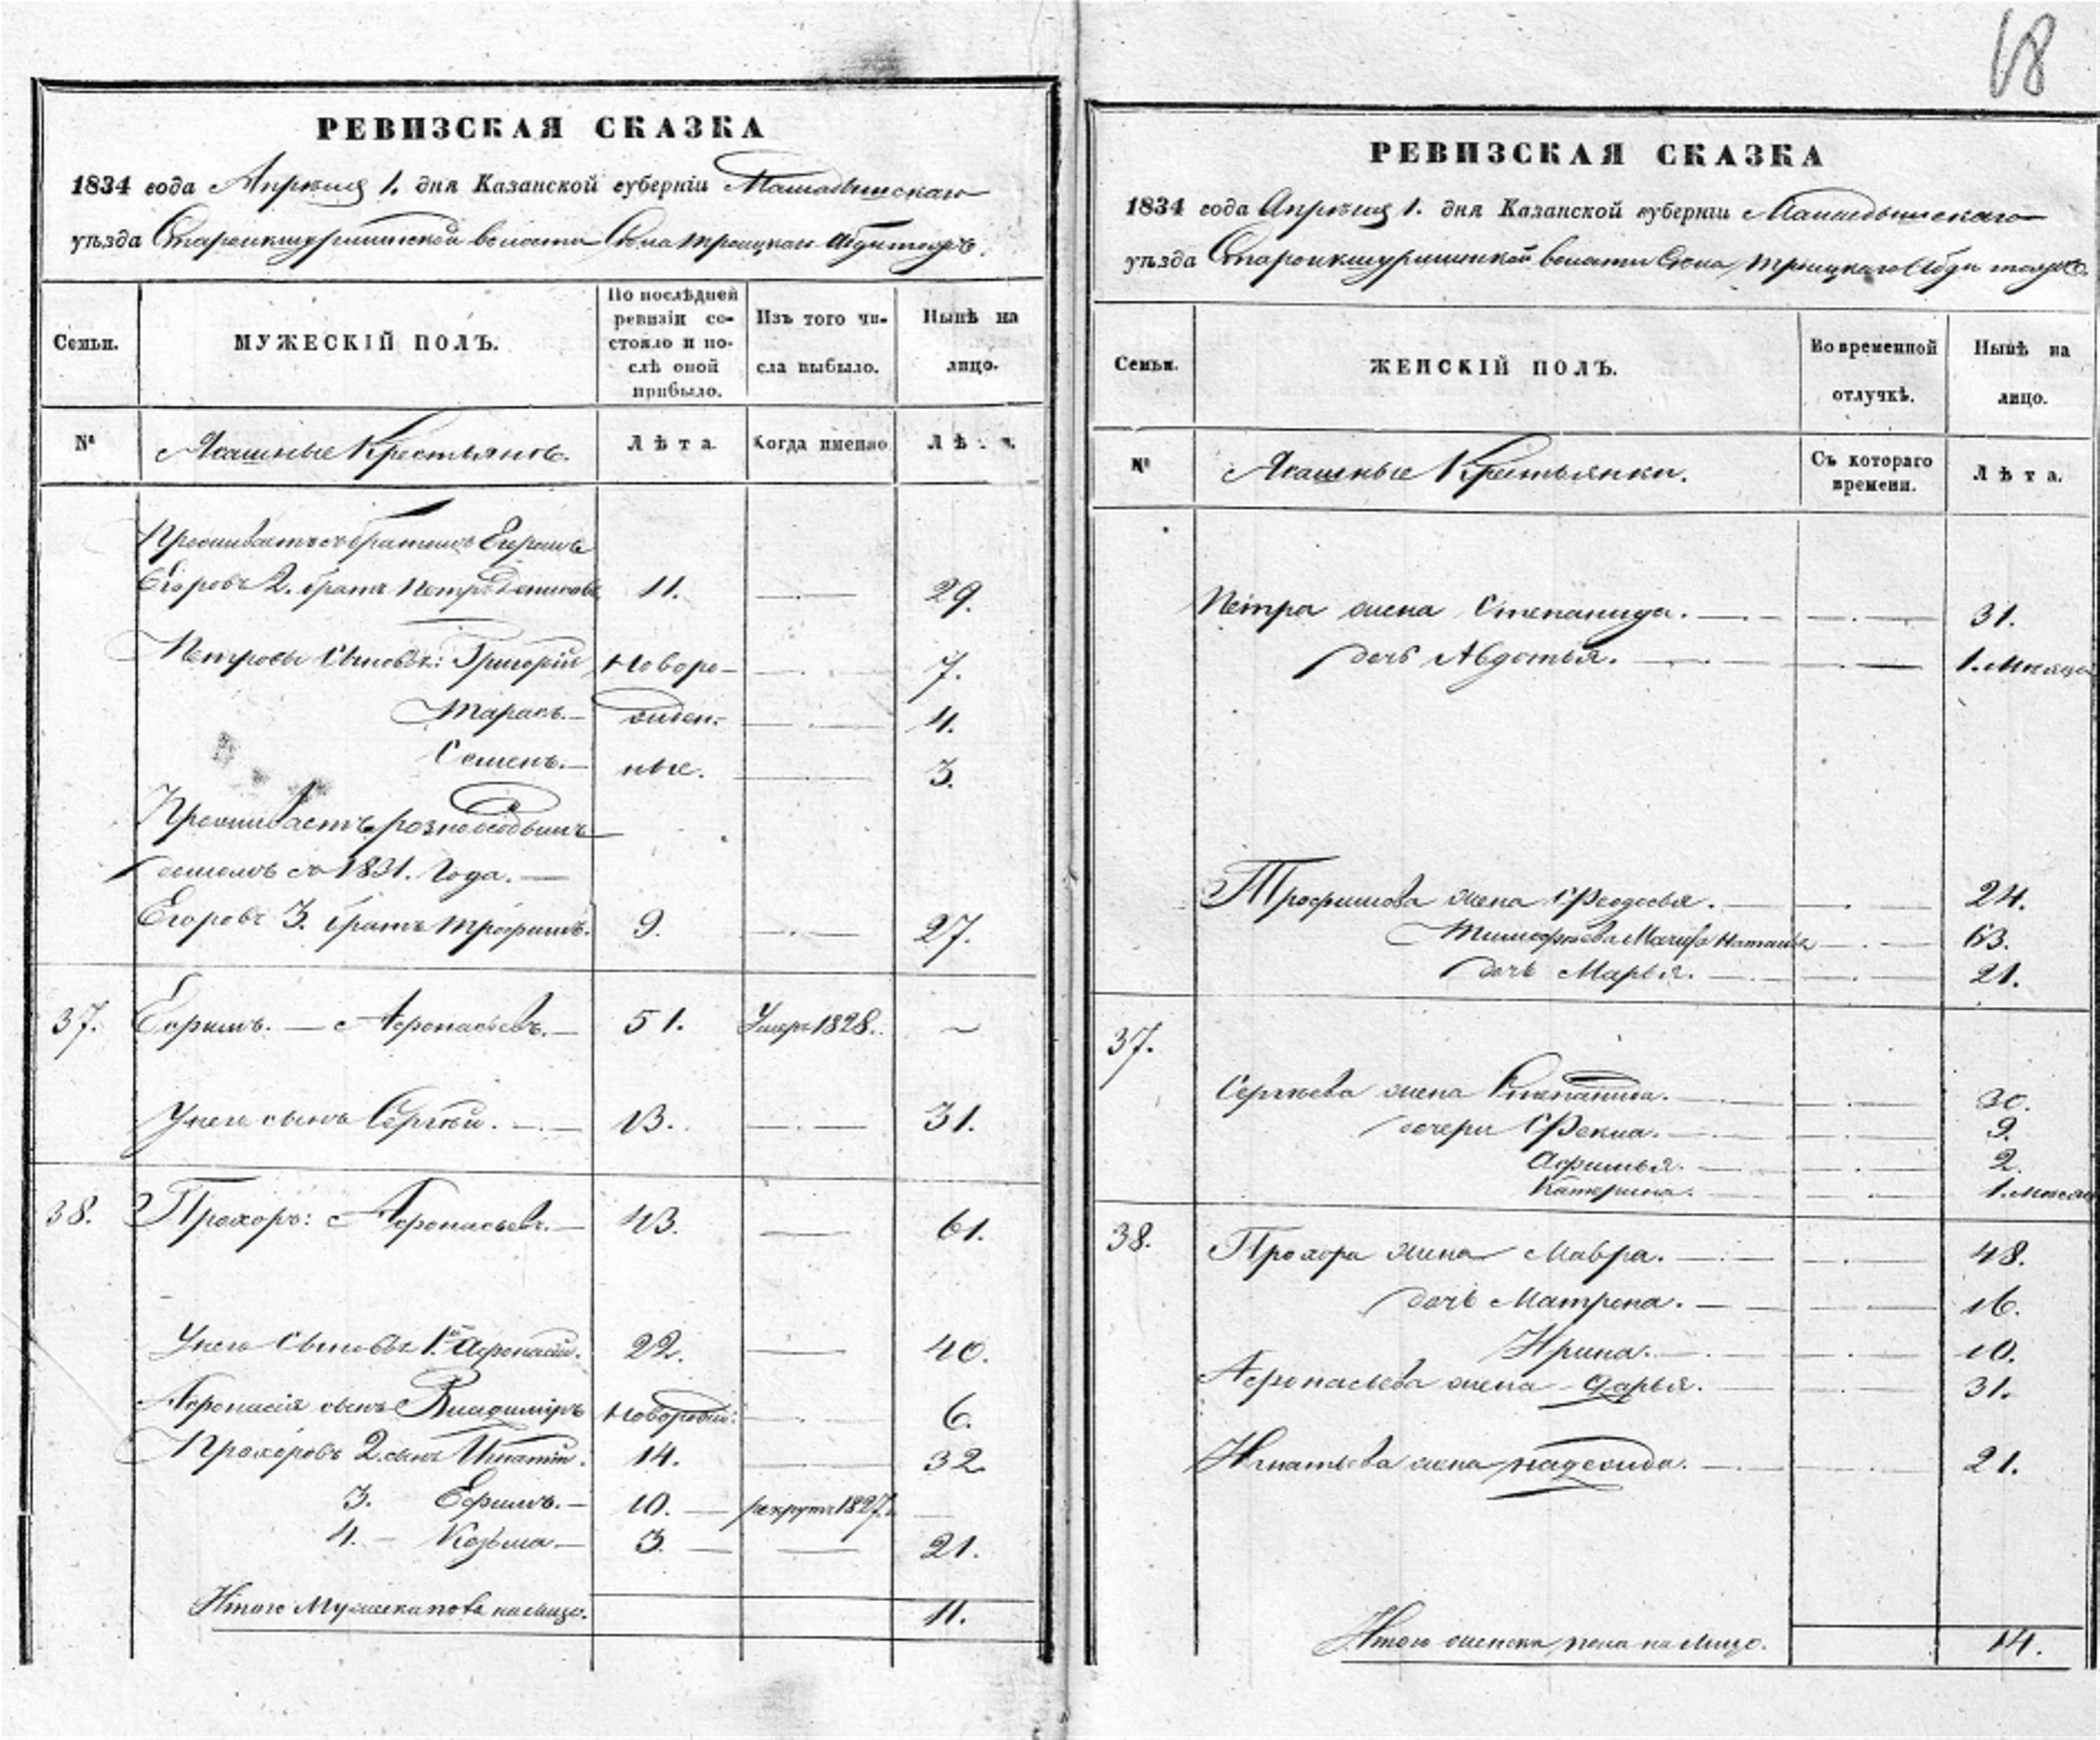 68
РЕВИЗСКАЯ СКАЗКА
1834 года Апрѣля 1. дня Казанской губерніи Мамадышскаго
уѣзда Староикшурминской волости Села Троицкаго Абди тожъ.
Семьи.
МУЖЕСКІЙ ПОЛЪ.
По послѣдней
ревизіи со-
стояло и по-
слѣ оной
прибыло.
Изъ того чи-
сла выбыло.
Нынѣ на
лицо.
№
Ясашные Крестьяне.
Лѣта.
Когда именно
Лѣ
Проживаетъ съ братомъ Егоромъ
Егоровъ 2. братъ Петръ 11. 29.
Петровы сыновья: Григорій Новоро- 7.
Тарасъ. жден- 4.
Семенъ. ные. 3.
Проживаетъ особымъ
домомъ съ 1831. Года.
Егоровъ 3. братъ Трофимъ. 9. 27.
37. Ефимъ. Афонасьевъ. 51. Умеръ 1828.
У него сынъ Сергѣй. 13. 31.
38. Прохоръ: Афонасьевъ. 43. 61.
У него Сыновья 1й Афонасій. 22. 40.
Афонасія сынъ Владимiръ Новорожд: 6.
Прохоровъ 2. сынъ Игнатій. 14. 32
3. Ефимъ. 10. рекрутъ 1827.
4. Козьма. 3. 21.
Итого Мужеска пола на лицо. 11.
РЕВИЗСКАЯ СКАЗКА
1834 года Апрѣля 1. дня Казанской губерніи Мамадышскаго
уѣзда Староикшурминской волости Села Троицкаго Абди тожъ.
Семьи.
ЖЕНСКІЙ ПОЛЪ.
Во временной
отлучкѣ.
Нынѣ на
лицо.
№
Ясашные Крестьянки.
Съ котораго
времени.
Лѣта.
Петра жена Степанида. 31.
дочь Авдотья. 1. мѣсяца
Трофимова жена Феодосья. 24.
Тимофѣева Мачиха Наталья 63.
дочь Марья. 21.
37.
Сергѣева жена Степанида. 30.
дочери Фекла. 9.
Афимья. 2.
Катерина. 1. мѣсяц
38. Прохора жена Мавра. 48.
дочь Матрена. 16.
Ирина. 10.
Афонасьева жена Дарья. 31.
Игнатьева жена Надежда. 21.
Итого женска пола на лицо. 14.